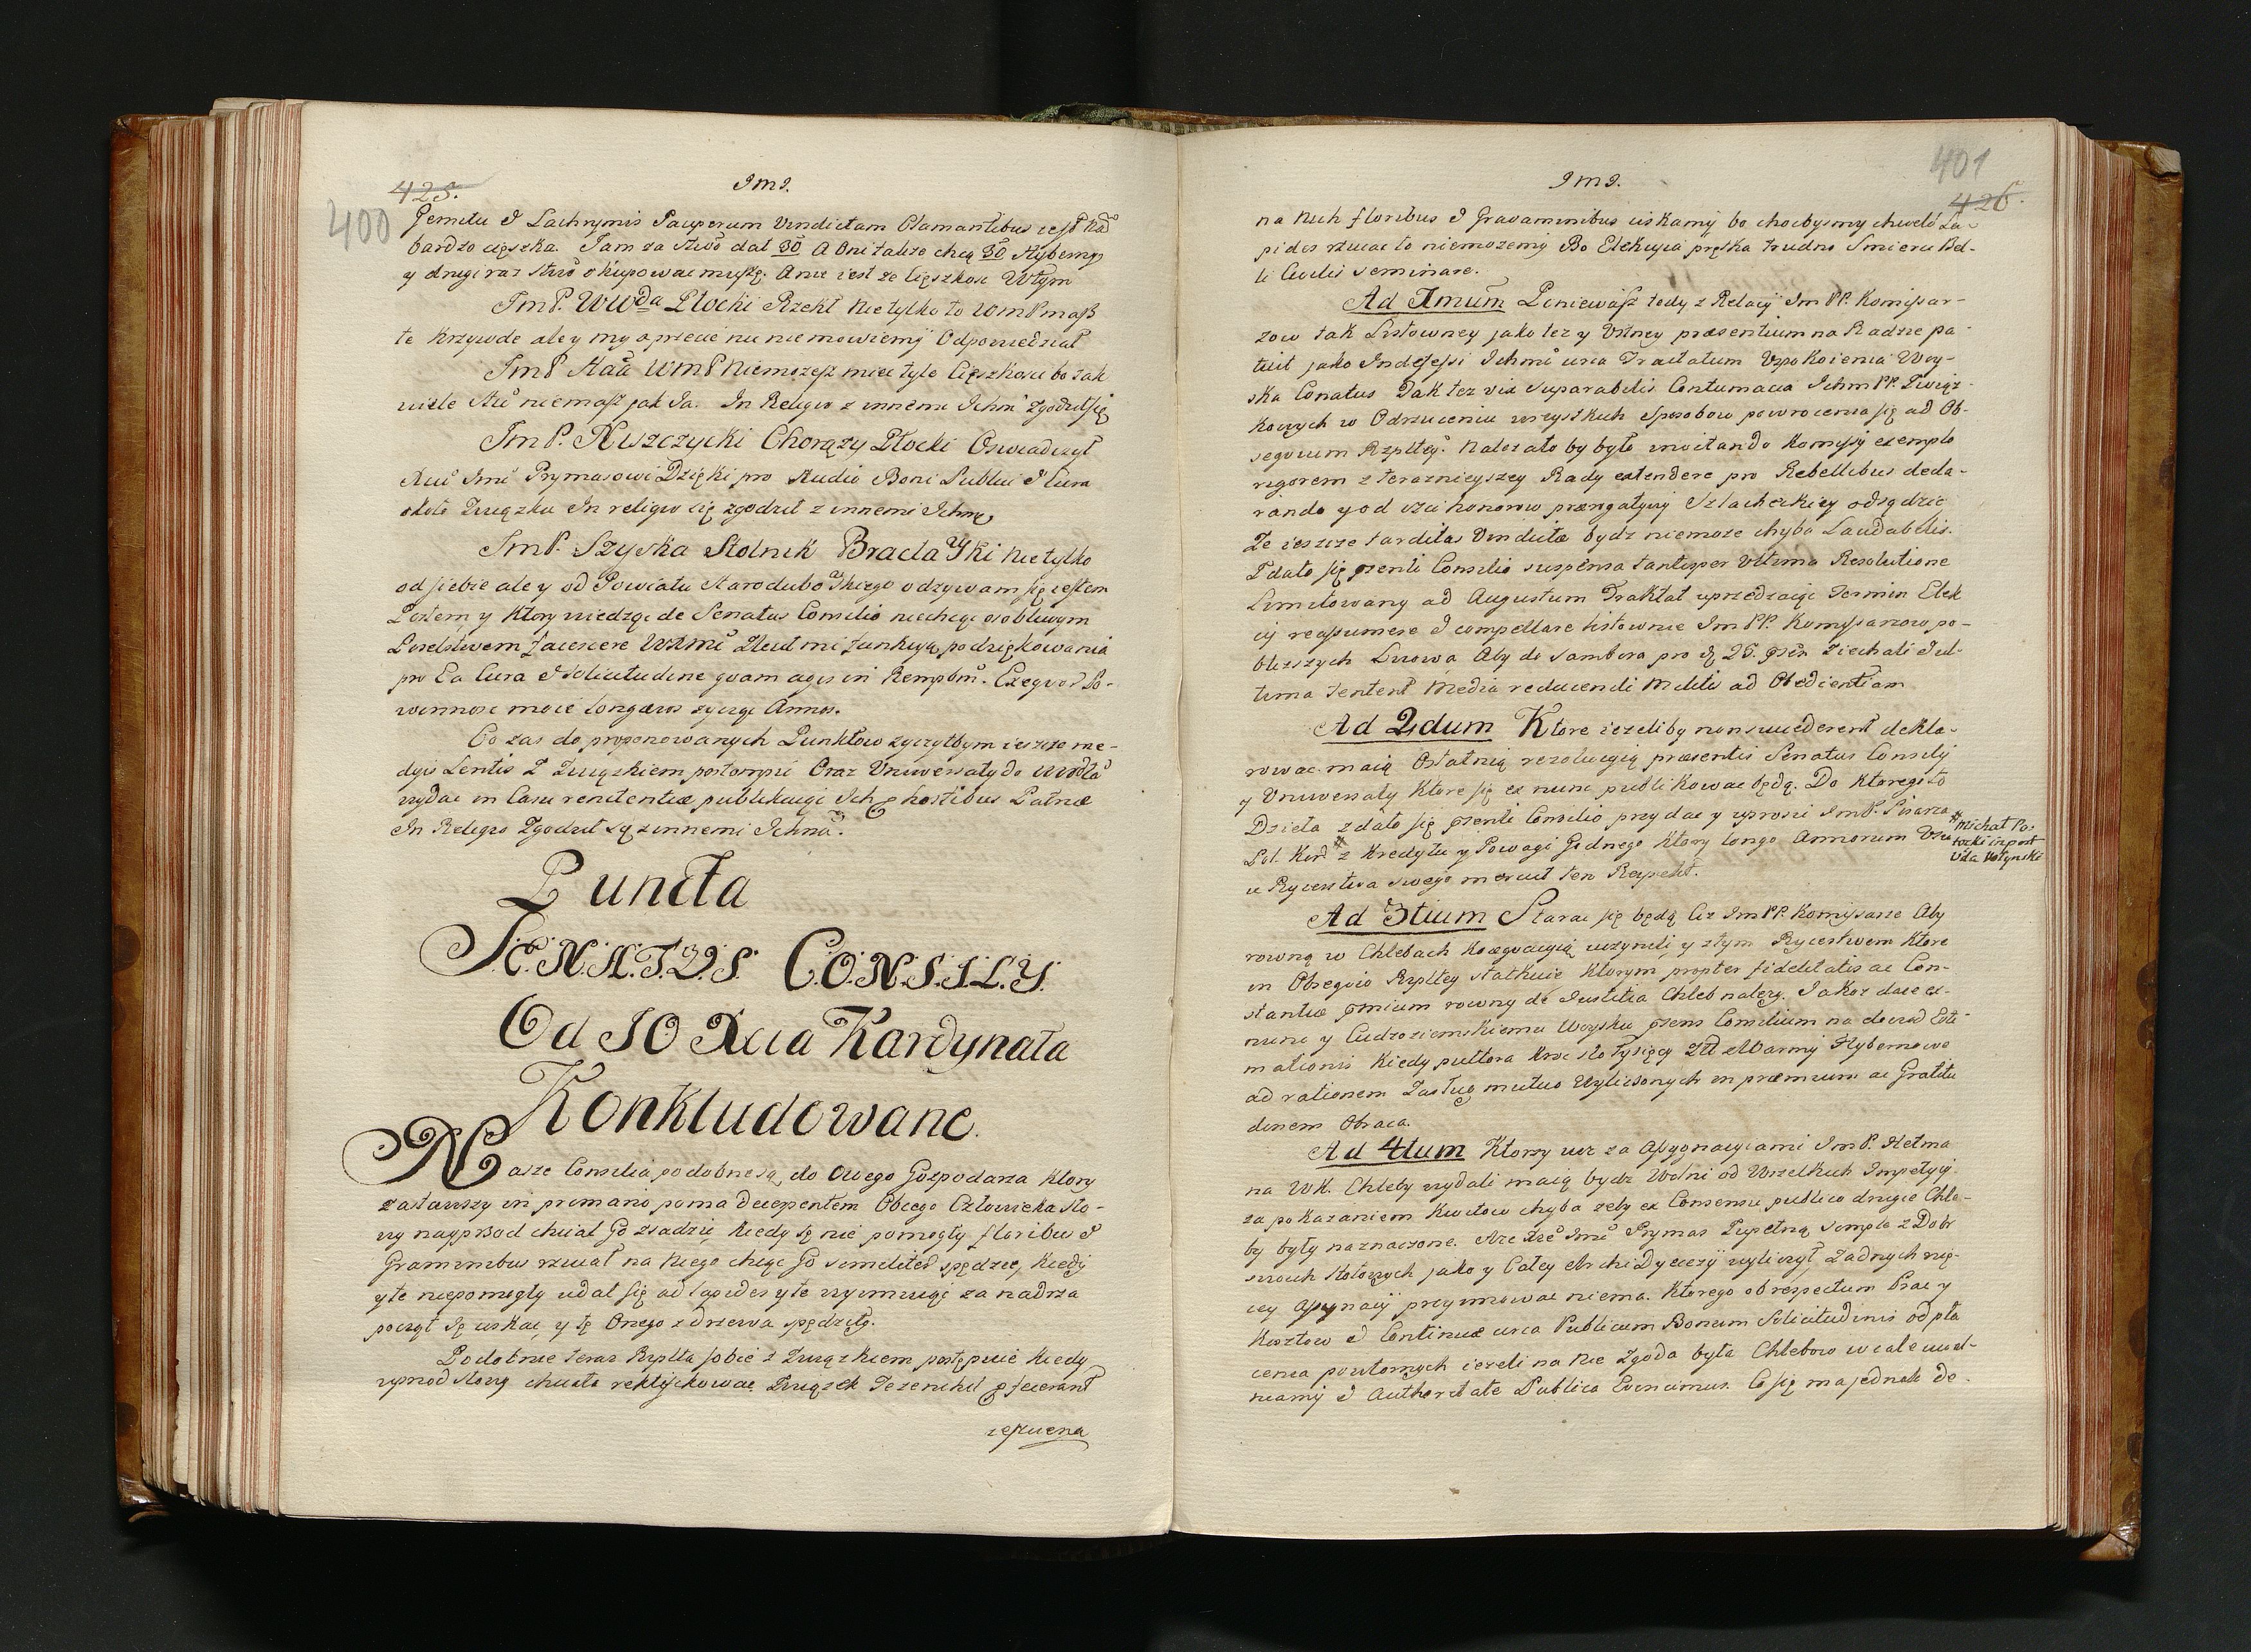 425.
400
Jmj.
Gemitu J Lachrymis Pauperum Vindictam Clamantibus iest
bardzo cięszka. Tam za dał 30 A Oni także chcą 30 Hyberny
y drugi raz okupować muszę. A nie iest ze to Cięszkosc Wtym
JmP. WWda Płocki Rzekł Nie tylko to WmP masz
te Krzywdę ale y my a przecie nic nie mowiemy Odpowiedział
JmP WmP Niemożesz miec tyle Cięszkosci bo tak
wiele niemasz jak Ja. In Reliquo z innemi Ichm zgodził się
JmP. Niszczycki Chorązy Płocki Oswiadczył
Jmci Prymasowi Dzięki pro Studio Boni Publici J Cura
około Związku In reliquo się zgodził z innemi Ichm
JmP. Szyska Stolnik Bracławski Nie tylko
od siebie ale y od Powiatu Starodubowskiego odzywam się iestem
Posłem y Ktory wiedząc de Senatus Consilio niechcąc osobliwym
Poselstwem facescere Zlecił mi funkcyą podziękowania
pro Ea Cura J Solicitudine quam agis in Rempbm. Exequor Po-
winnosc moie longævos zycząc Annos.
Co zas do proponowanych Punktow zyczyłbym ieszcze me-
dys Lentis Z Związkiem postąmpic Oraz Vniwersały do
wydac in Casu renitentiæ publikuiąc Ich hostibus Patriæ
In Reliquo Zgodził się z innemi Ichm.
Puncta
S.E.N.A.T.V.S. C.O.N.S.I.L.Y.
Od JO Xcia Kardynała
Konkludowane.
Nasze Consilia podobne są do Owego Gospodarza Ktory
zastawszy in promano poma decerpentem Obcego Człowieka sło-
wy nayprzod chciał Go zsadzic Kiedy się nie pomogły floribus J
Graminibus rzucał na Niego chcąc Go similiter spędzic, Kiedy
y te niepomogły udał się ad lapides y te wyimuiąc za nadrza
począł Ię ciskac, y tę Onego z drzewa spędził.
Podobnie teraz Rplta sobie z Związkiem postępuie Kiedy
wprzod słowy chciała reklifikowac Związek Je fecerant
rzucena
401
426.
Jmj.
na Nich floribus J Gravaminibus ciskamy bo chocbysmy chcieli La-
pides rzucac to niemozemy Bo Elekcyia prętka trudno Smieru Bel-
li Civilis seminare.
Ad Imum Poniewasz tedy z Relacij Jm PP. Komissar-
zow tak Listowney jako tez y Vstney præsentium na Radzie pa-
tuit jako Indefessi Ichmci circa Tractatum Vspokoienia Woy-
ska Conatus Jak tez vix superabilis Contumacia Ichm PP. Związ-
kowych w Odrzuceniu wszystkich Sposobow powrocenia się ad Ob-
sequium Rzpltey. Nalezało by było invitando Komissij exemplo
rigorem z teraznieyszey Rady extendere pro Rebellibus decla-
rando y od czci honorow prærogatywy Szlacheckiey odsądzic
Ze ieszcze tarditas Vindictæ bydz niemoze chyba Laudabilis.
Zdało się præsenti Consilio suspensa tantisper Vltima Resolutione
Limitowany ad Augustum Traktat uprzedzaiąc Termin Elek
cij reassumere J compellare listownie Jm PP. Komyssarzow po-
blizszych Lwowa Aby do Sambora pro d 26. ziechali J ul-
tima tentent Media reducendi Militis ad Obedientiam
Ad 2dum Ktore iezeliby non succederent dekla-
rowac maią Ostatnią rezolucyią præsentis Senatus Consilij
y Vniwersały Ktore się ex nunc publikowac będą. Do Ktorego to
Dzieła zdało się præsenti Consilio przydac y uprosic JmP. Pisarza
Pol. Kor # z Kredytu y Powagi Godnego Ktory longo Annorum Vsu
w Rycerstwa swego meruit ten Respekt.
# Michał Po-
tocki in post
Wda Wołynski
Ad 3tium Starac się będą Ciz Jm PP. Komissarze Aby
rowną w Chlebach Koæquacyią uczynili y z tym Rycerstwem Ktore
in Obsequio Rzpltey statkuie Ktorym propter fidelitatis ac Con-
stantiæ præmium rowny de Iustitia Chleb nalezy. Iakoz daie ex-
nunc y Cudzoziemskiemu Woysku præsens Consilium na dowod Esti-
mationis Kiedy pułtora sto tysięcy Hybernowe
ad rationem Zasług mutuo Wyliczonych in præmium ac Gratitu
dinem Obraca.
Ad 4tum Ktorzy iuz za Assygnacyiami JmP. Hetma
na WK. Chleby wydali maią bydz Wolni od Wszelkich Impetycij
za pokazaniem Kwitow chyba zeby ex Consensu publico drugie Chle-
by były naznaczone. Jmc Prymas Zupełną simpla z Dobr
swoich Stołowych jako y Całey ArchiDyecezij wyliczył Zadnych wię-
cey Assygnacij przyimowac niema. Ktorego ob respectum Prac y
Kosztow J Continuæ circa Publicum Bonum Solicitudinis od pła
cenia powtornych iezeli na Nie Zgoda była Chlebow wcale uwal-
niamy J Authoritate Publica Evincimus. Co się ma jednak de-